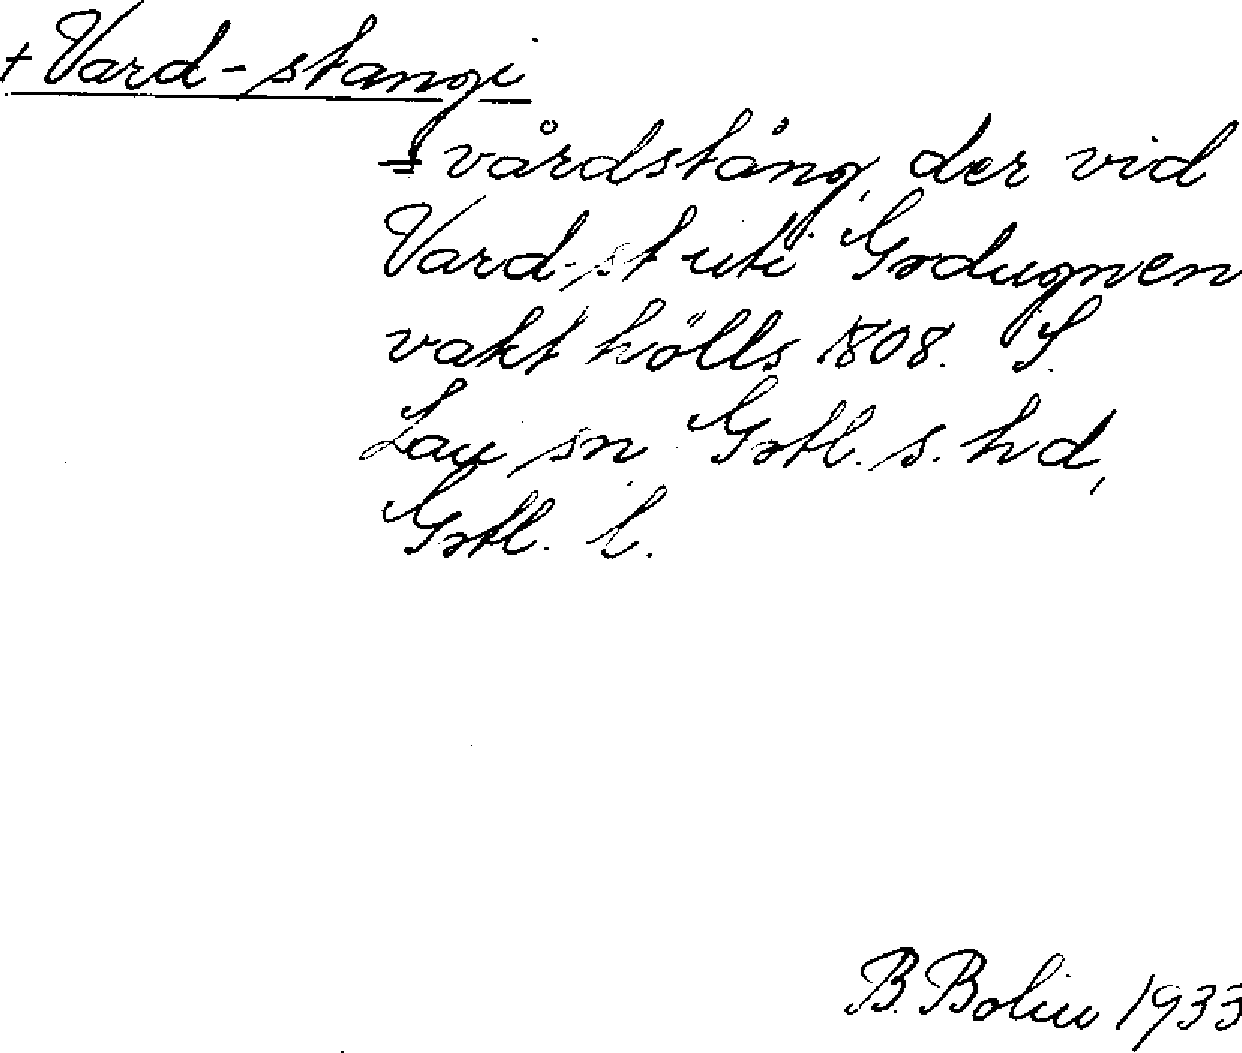 + Vard-stangi
= vårdstång, der vid
Vard-st uti Godugnen
vakt hölls 1808. S.
Lau sn Gotl. s. hd,
Gotl. l.
B. Bolin 1933